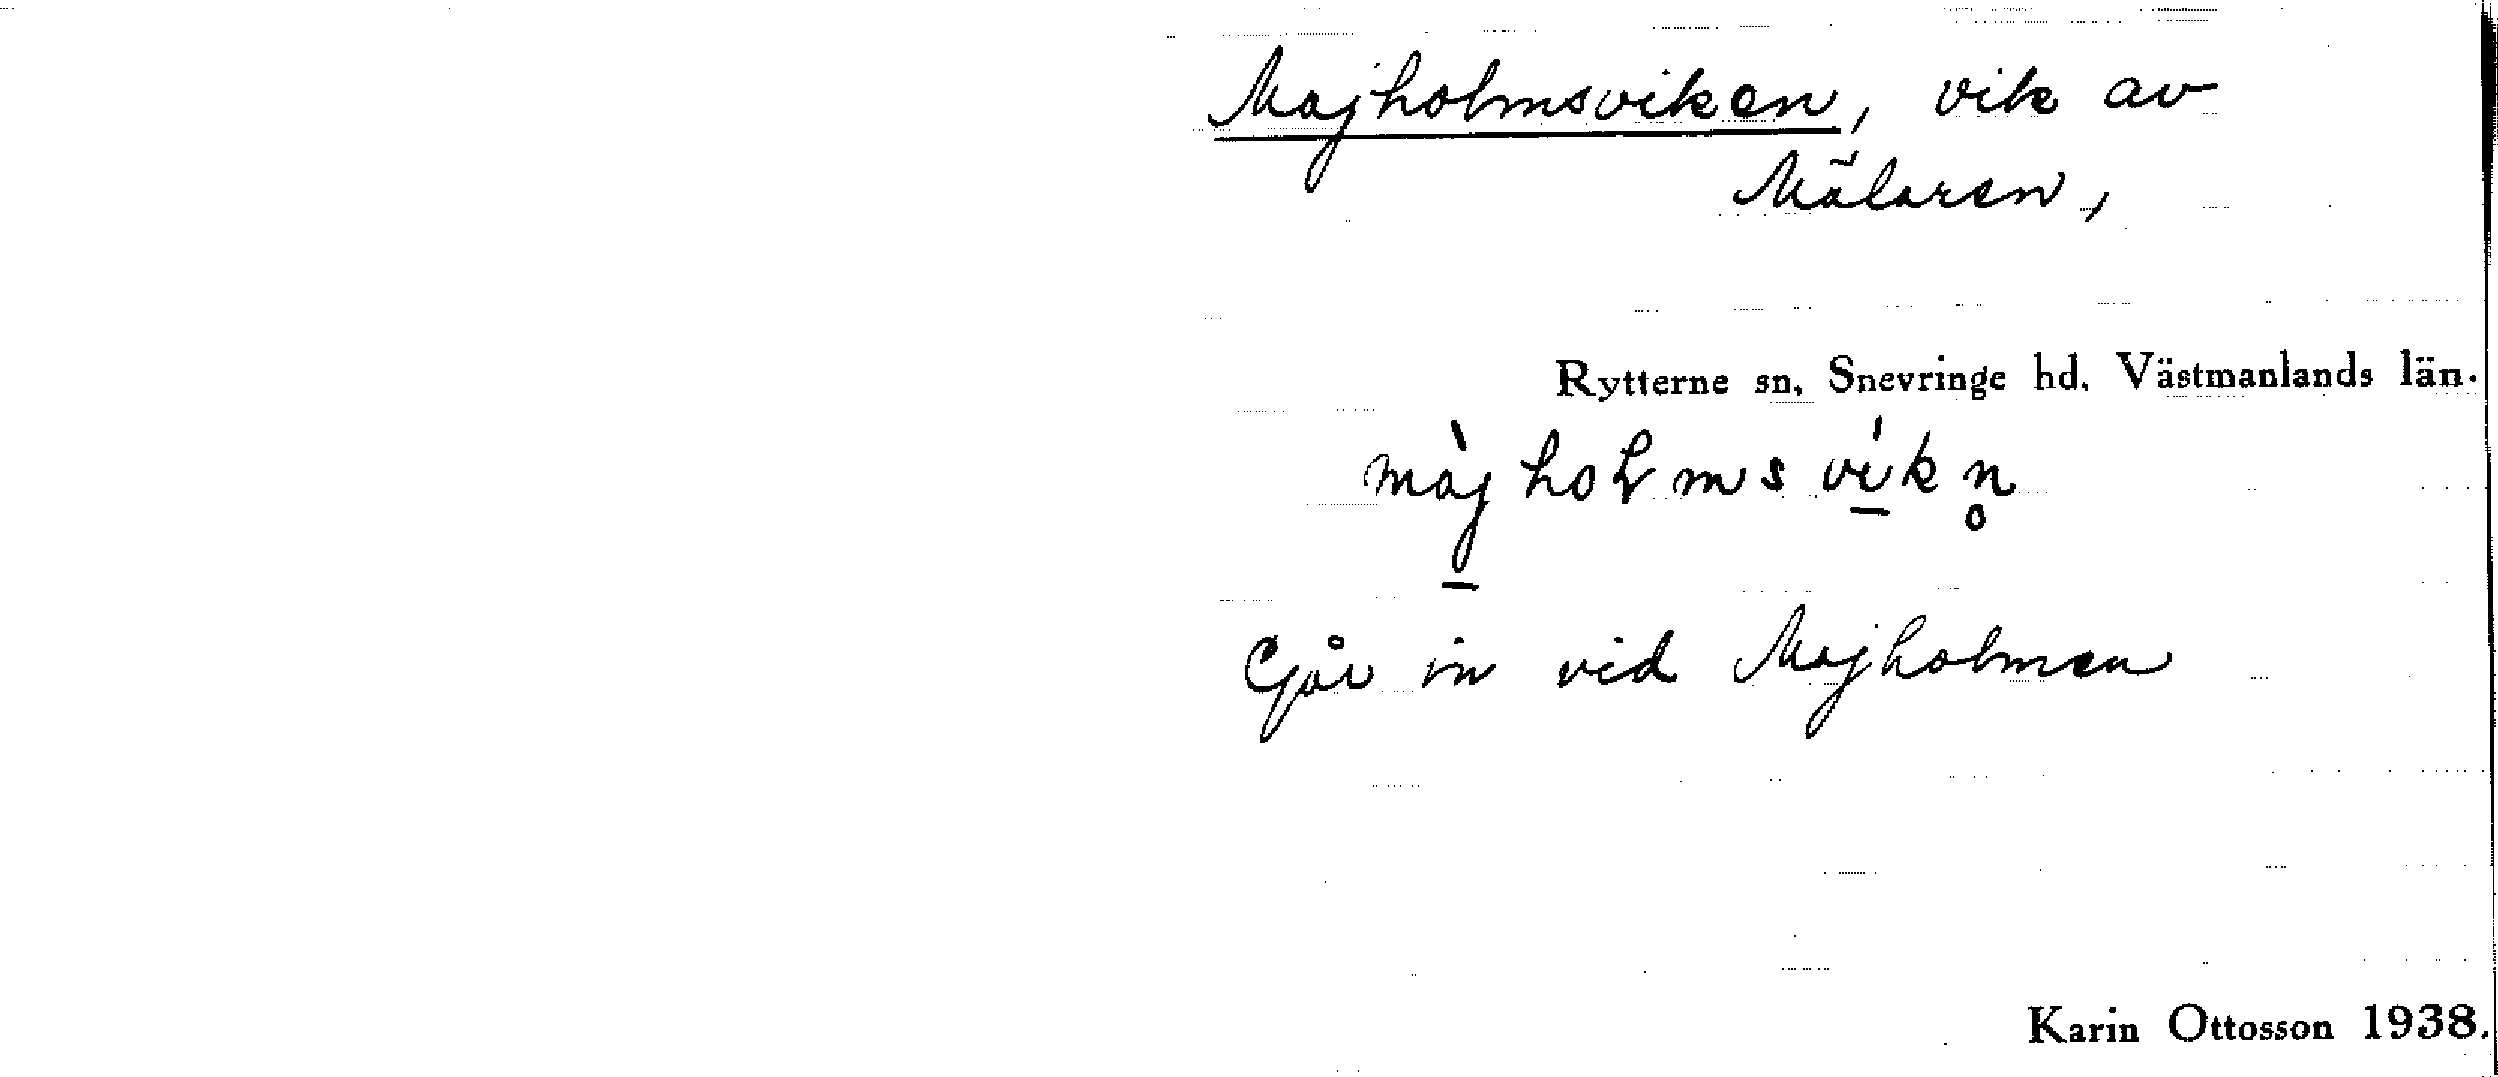 Majholmsviken, vik av
Mälaren,
Rytterne sn, Snevringe hd. Västmanlands län.
màjhoɫmsvíkn̥
Går in vid Majholmen
Karin Ottosson 1938.